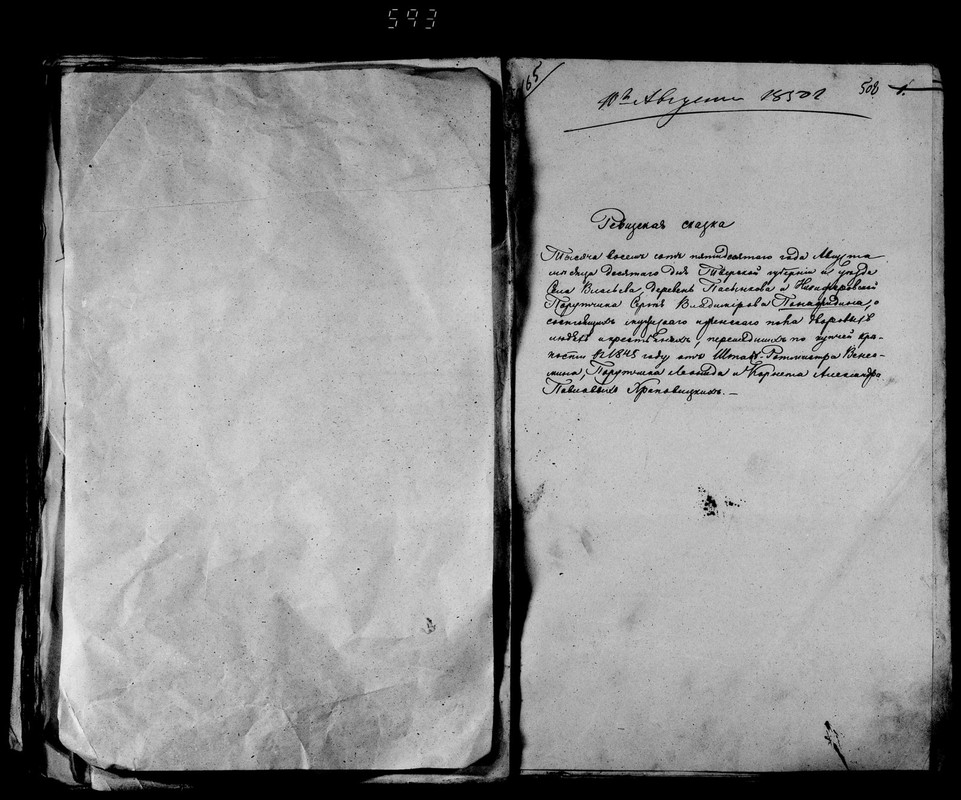 593
165
10го Августа 1850 г
508 1.
Ревизская сказка
Тысяча восемь сотъ пятидесятого года Августа
месяца десятого дня Тверской губерніи и уезда
Села Власьева, Деревень Пасынкова и Никифоровской
Порутчика Сергѣя Владимірова Панафидина, о
состоящихъ мужескаго и женскаго пола дворовыхъ
людяхъ и крестьянахъ, перешедшихъ по купчей кре-
пости въ 1845 году отъ Штабъ-Ротмистра Венеа-
мина, Порутчика Леонида и Корнета Александра
Павловыхъ Храповицкихъ. —